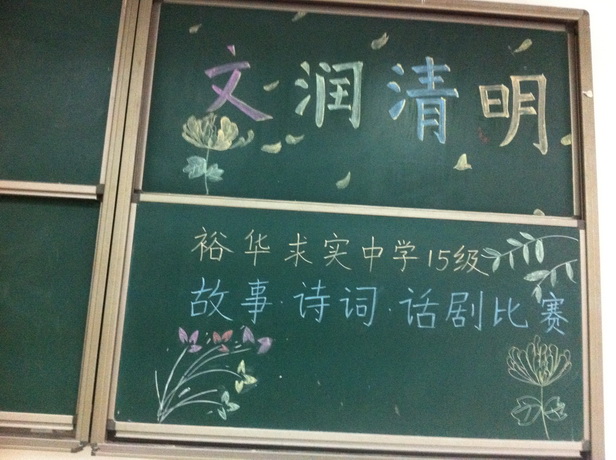 文润清明
裕华求实中学15级
故事·诗词·话剧比赛